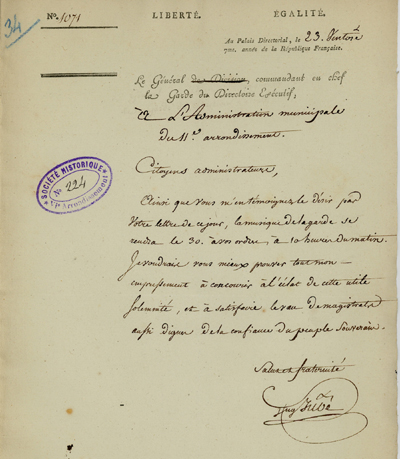 34
N.º 1071
LIBERTÉ. ÉGALITÉ.
Au Palais Directorial, le 23. Ventose
7me. année de la République Française.
Le Général de Division, commandant en chef
la Garde du Directoire Exécutif;
L'Administration municipale
du 11e. arrondissement.
SOCIÉTÉ HISTORIQUE
No. 224
VIe Arrondissement
Citoyens administrateurs,
Ainsi que vous m'en témoignez le désir par
Votre lettre de ce jour, la musique de la garde se
rendra le 30. à vos ordres, à 10 heures du matin.
Je voudrais vous mieux prouver tout mon
empressement à concourir à l'éclat de cette utile
Solemnité, et à satisfaire le vœu de magistrats
aussi dignes de la confiance du peuple Souverain.
Salut et fraternité
Aug Jubé